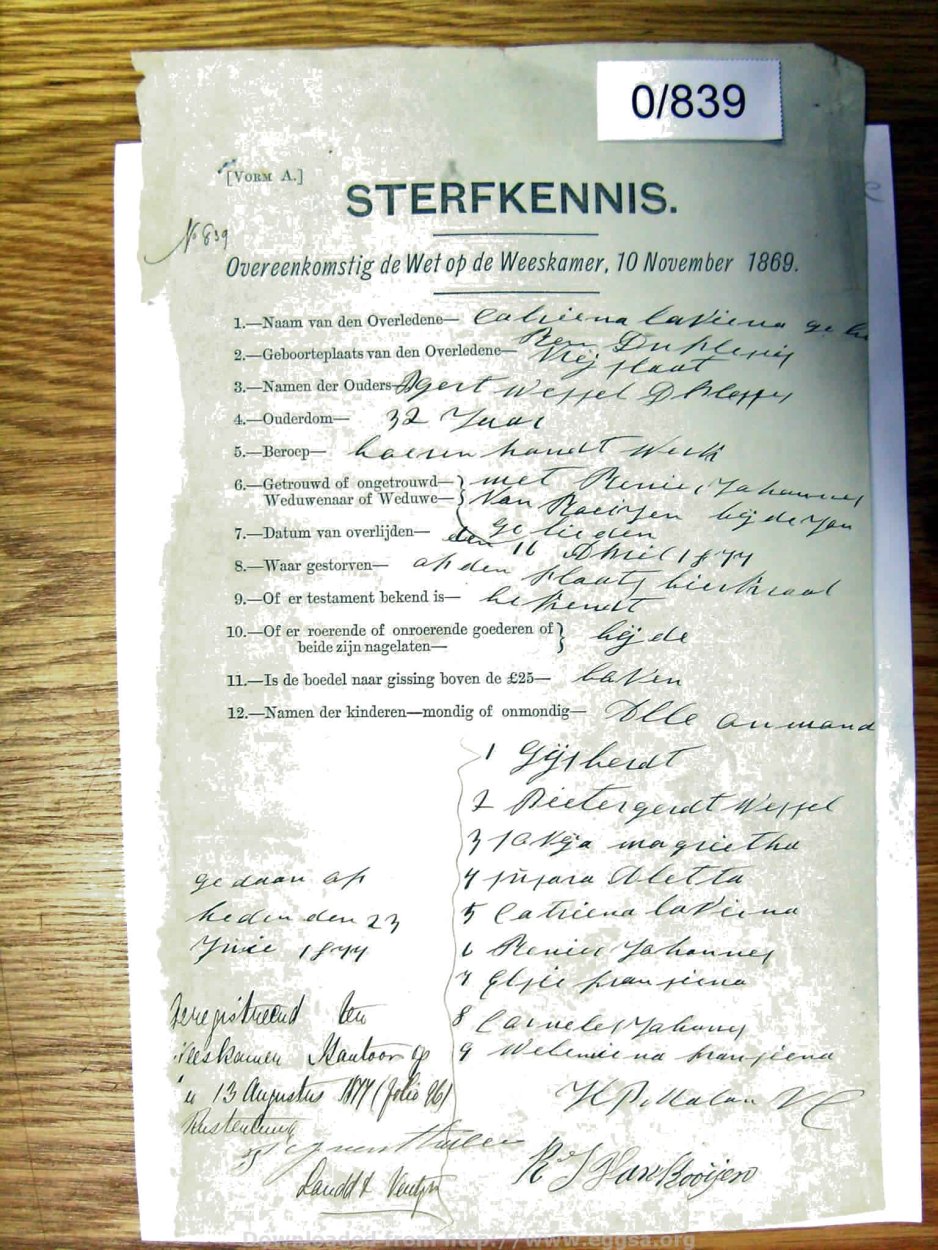 0/839
[VORM A.]
STERFKENNIS.
No 839
Overeenkomstig de Wet op de Weeskamer, 10 November 1869.
1.—Naam van den Overledene— Catriena laviena ge bo
ren Duplesies
2.—Geboorteplaats van den Overledene— Vrij plaat
3.—Namen der Ouders— gert Wessel
4.—Ouderdom— 32 Jaar
5.—Beroep— handt Werk
6.—Getrouwd of ongetrouwd— met Renier Johannes
Weduwenaar of Weduwe— Van Rooijen bij de
ge lieden
7.—Datum van overlijden— den 16 April 1877
8.—Waar gestorven— op den plaats bierkraal
9.—Of er testament bekend is— bekendt
10.—Of er roerende of onroerende goederen of bij de
beide zijn nagelaten—
11.—Is de boedel naar gissing boven de £25— boven
12.—Namen der kinderen—mondig of onmondig— Alle onmond
1 Gijsberdt
2 Pieter gerdt Wessel
3 magrietha
4 Aletta
5 Catriena laviena
6 Renier Johannes
7 Elsie fransiena
8 Johannes
9 Welemiena fransiena
ge daan op
heden den 23
Junie 1877
Geregistreerd ten
Weeskamer Kantoor op
13 Augustus 1877 (folio 96)
Rustenburg
H P Malan VC
Landdt & Vendmr
R J Van Rooijen
Downloaded from http://www.eggsa.org